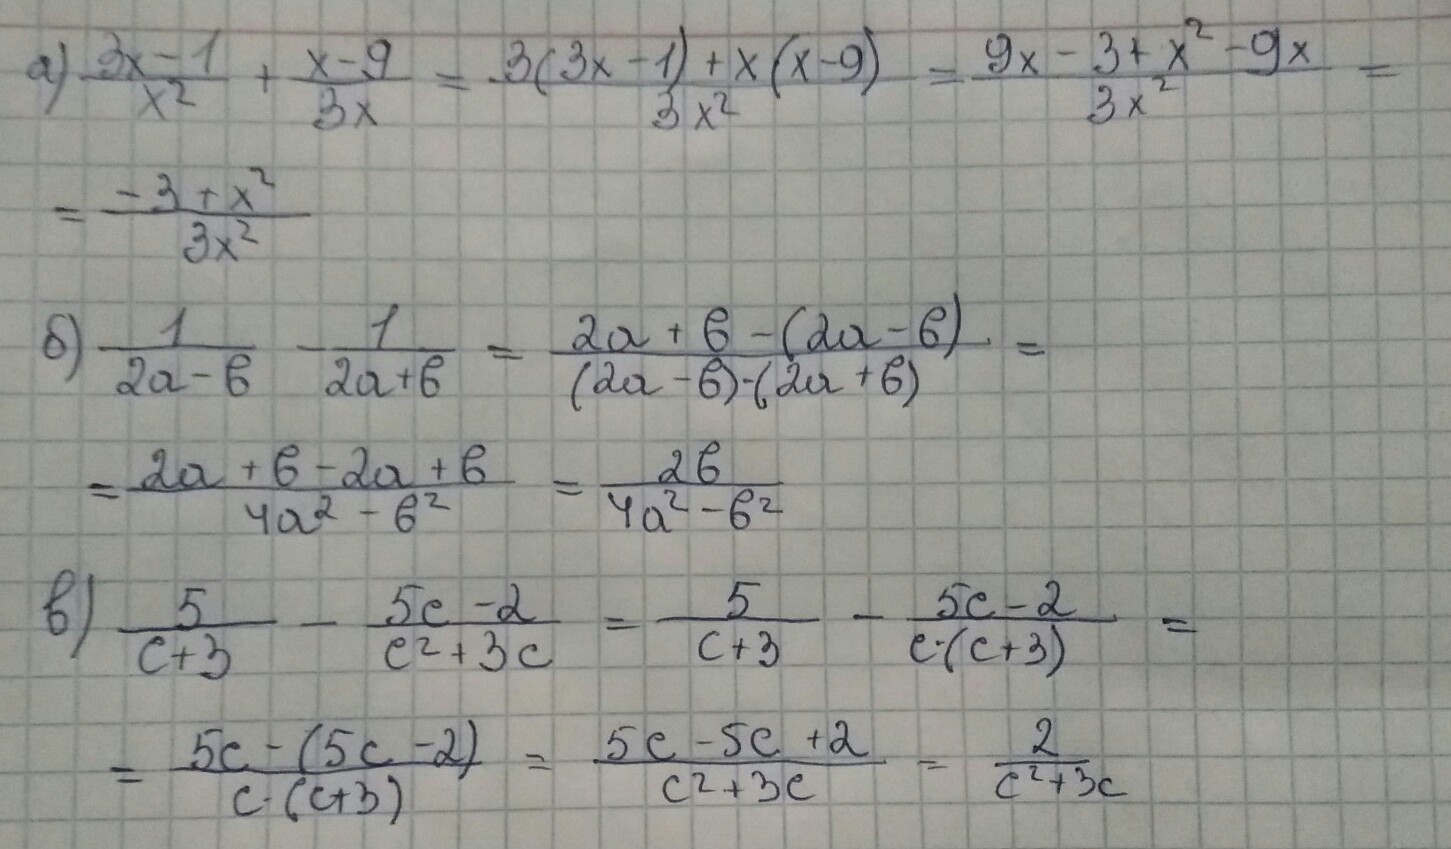 а) (3x - 1)/x² + (x - 9)/3x = (3(3x - 1) + x(x - 9))/3x² = (9x - 3 + x² - 9x)/3x² =
= (-3 + x²)/3x²
б) 1/(2a - в) - 1/(2a + в) = (2a + в - (2a - в))/((2a - в)·(2a + в)) =
= (2a + в - 2a + в)/(4a² - в²) = 2в/(4a² - в²)
в) 5/(c + 3) - (5c - 2)/(c² + 3c) = 5/(c + 3) - (5c - 2)/(c·(c + 3)) =
= (5c - (5c - 2))/(c·(c + 3)) = (5c - 5c + 2)/(c² + 3c) = 2/(c² + 3c)